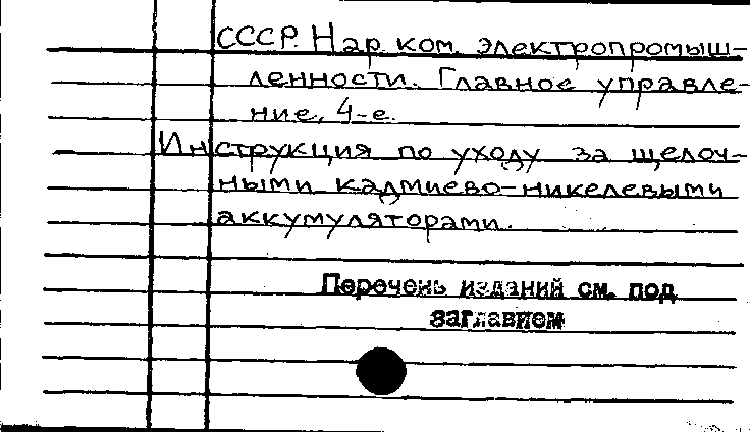 СССР. Нар. ком. электропромыш-
ленности. Главное управле-
ние, 4-е.
Инструкция по уходу за щелоч-
ными кадмиево-никелевыми
аккумуляторами.
Перечень изданий см. под
заглавием